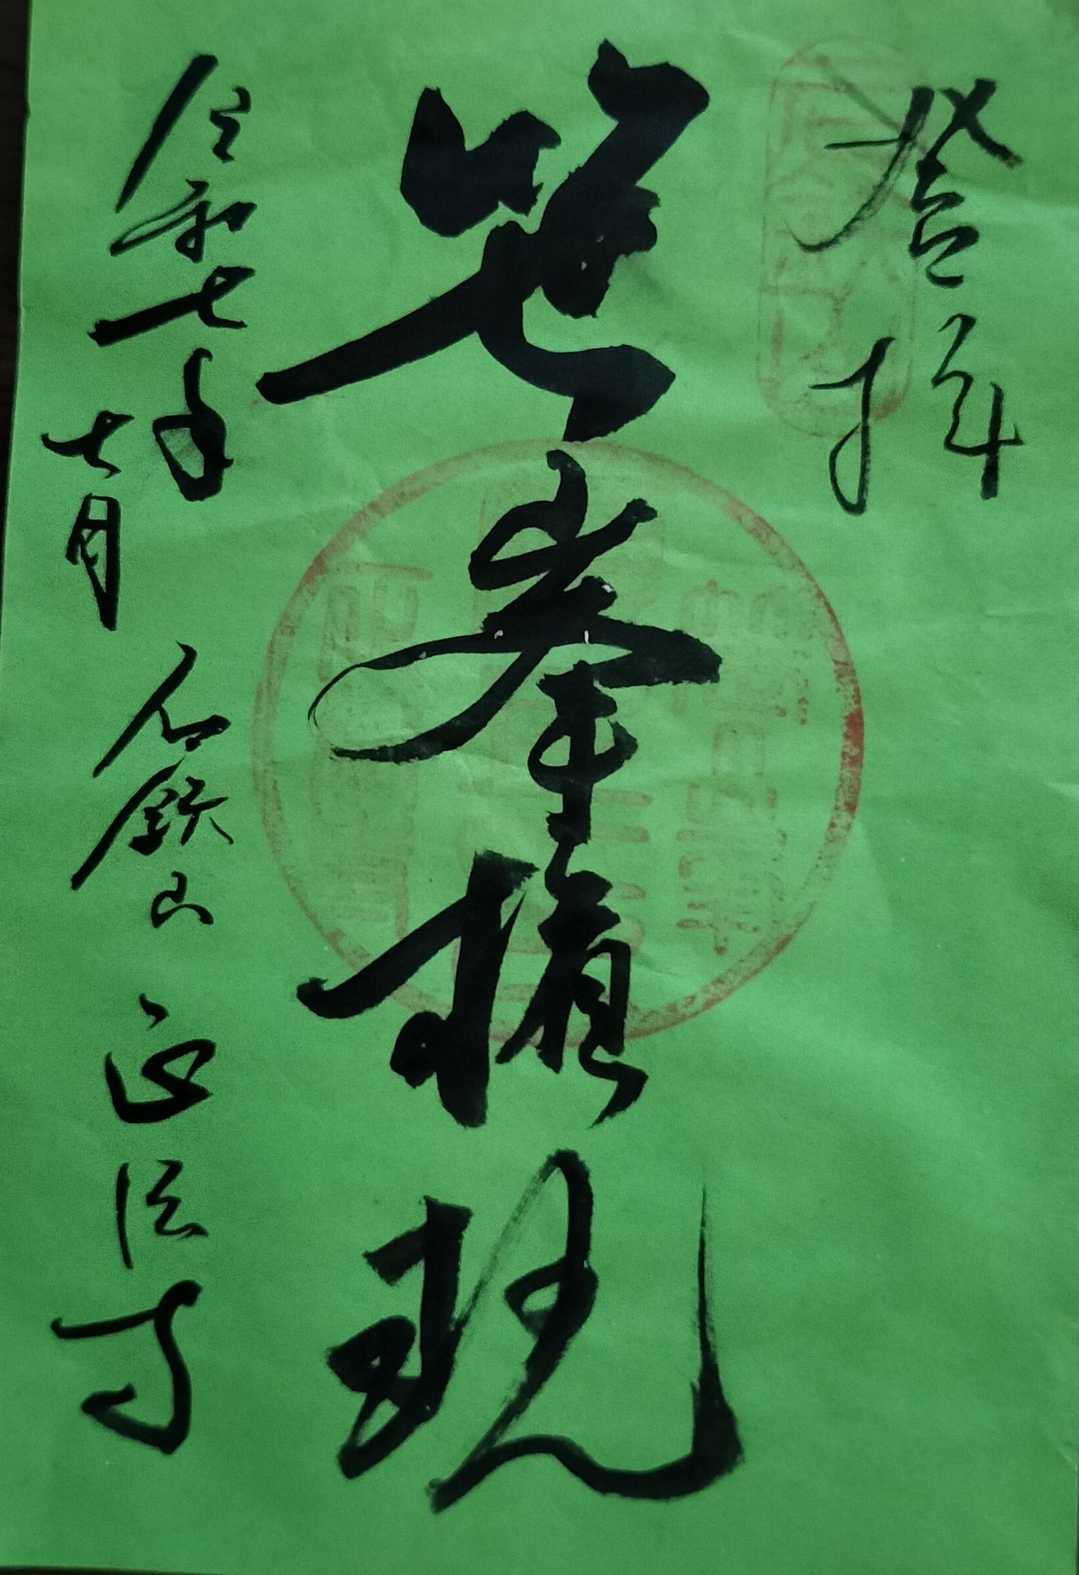 登拝
笹峯権現
令和七年
七月
石鉄山
正法寺